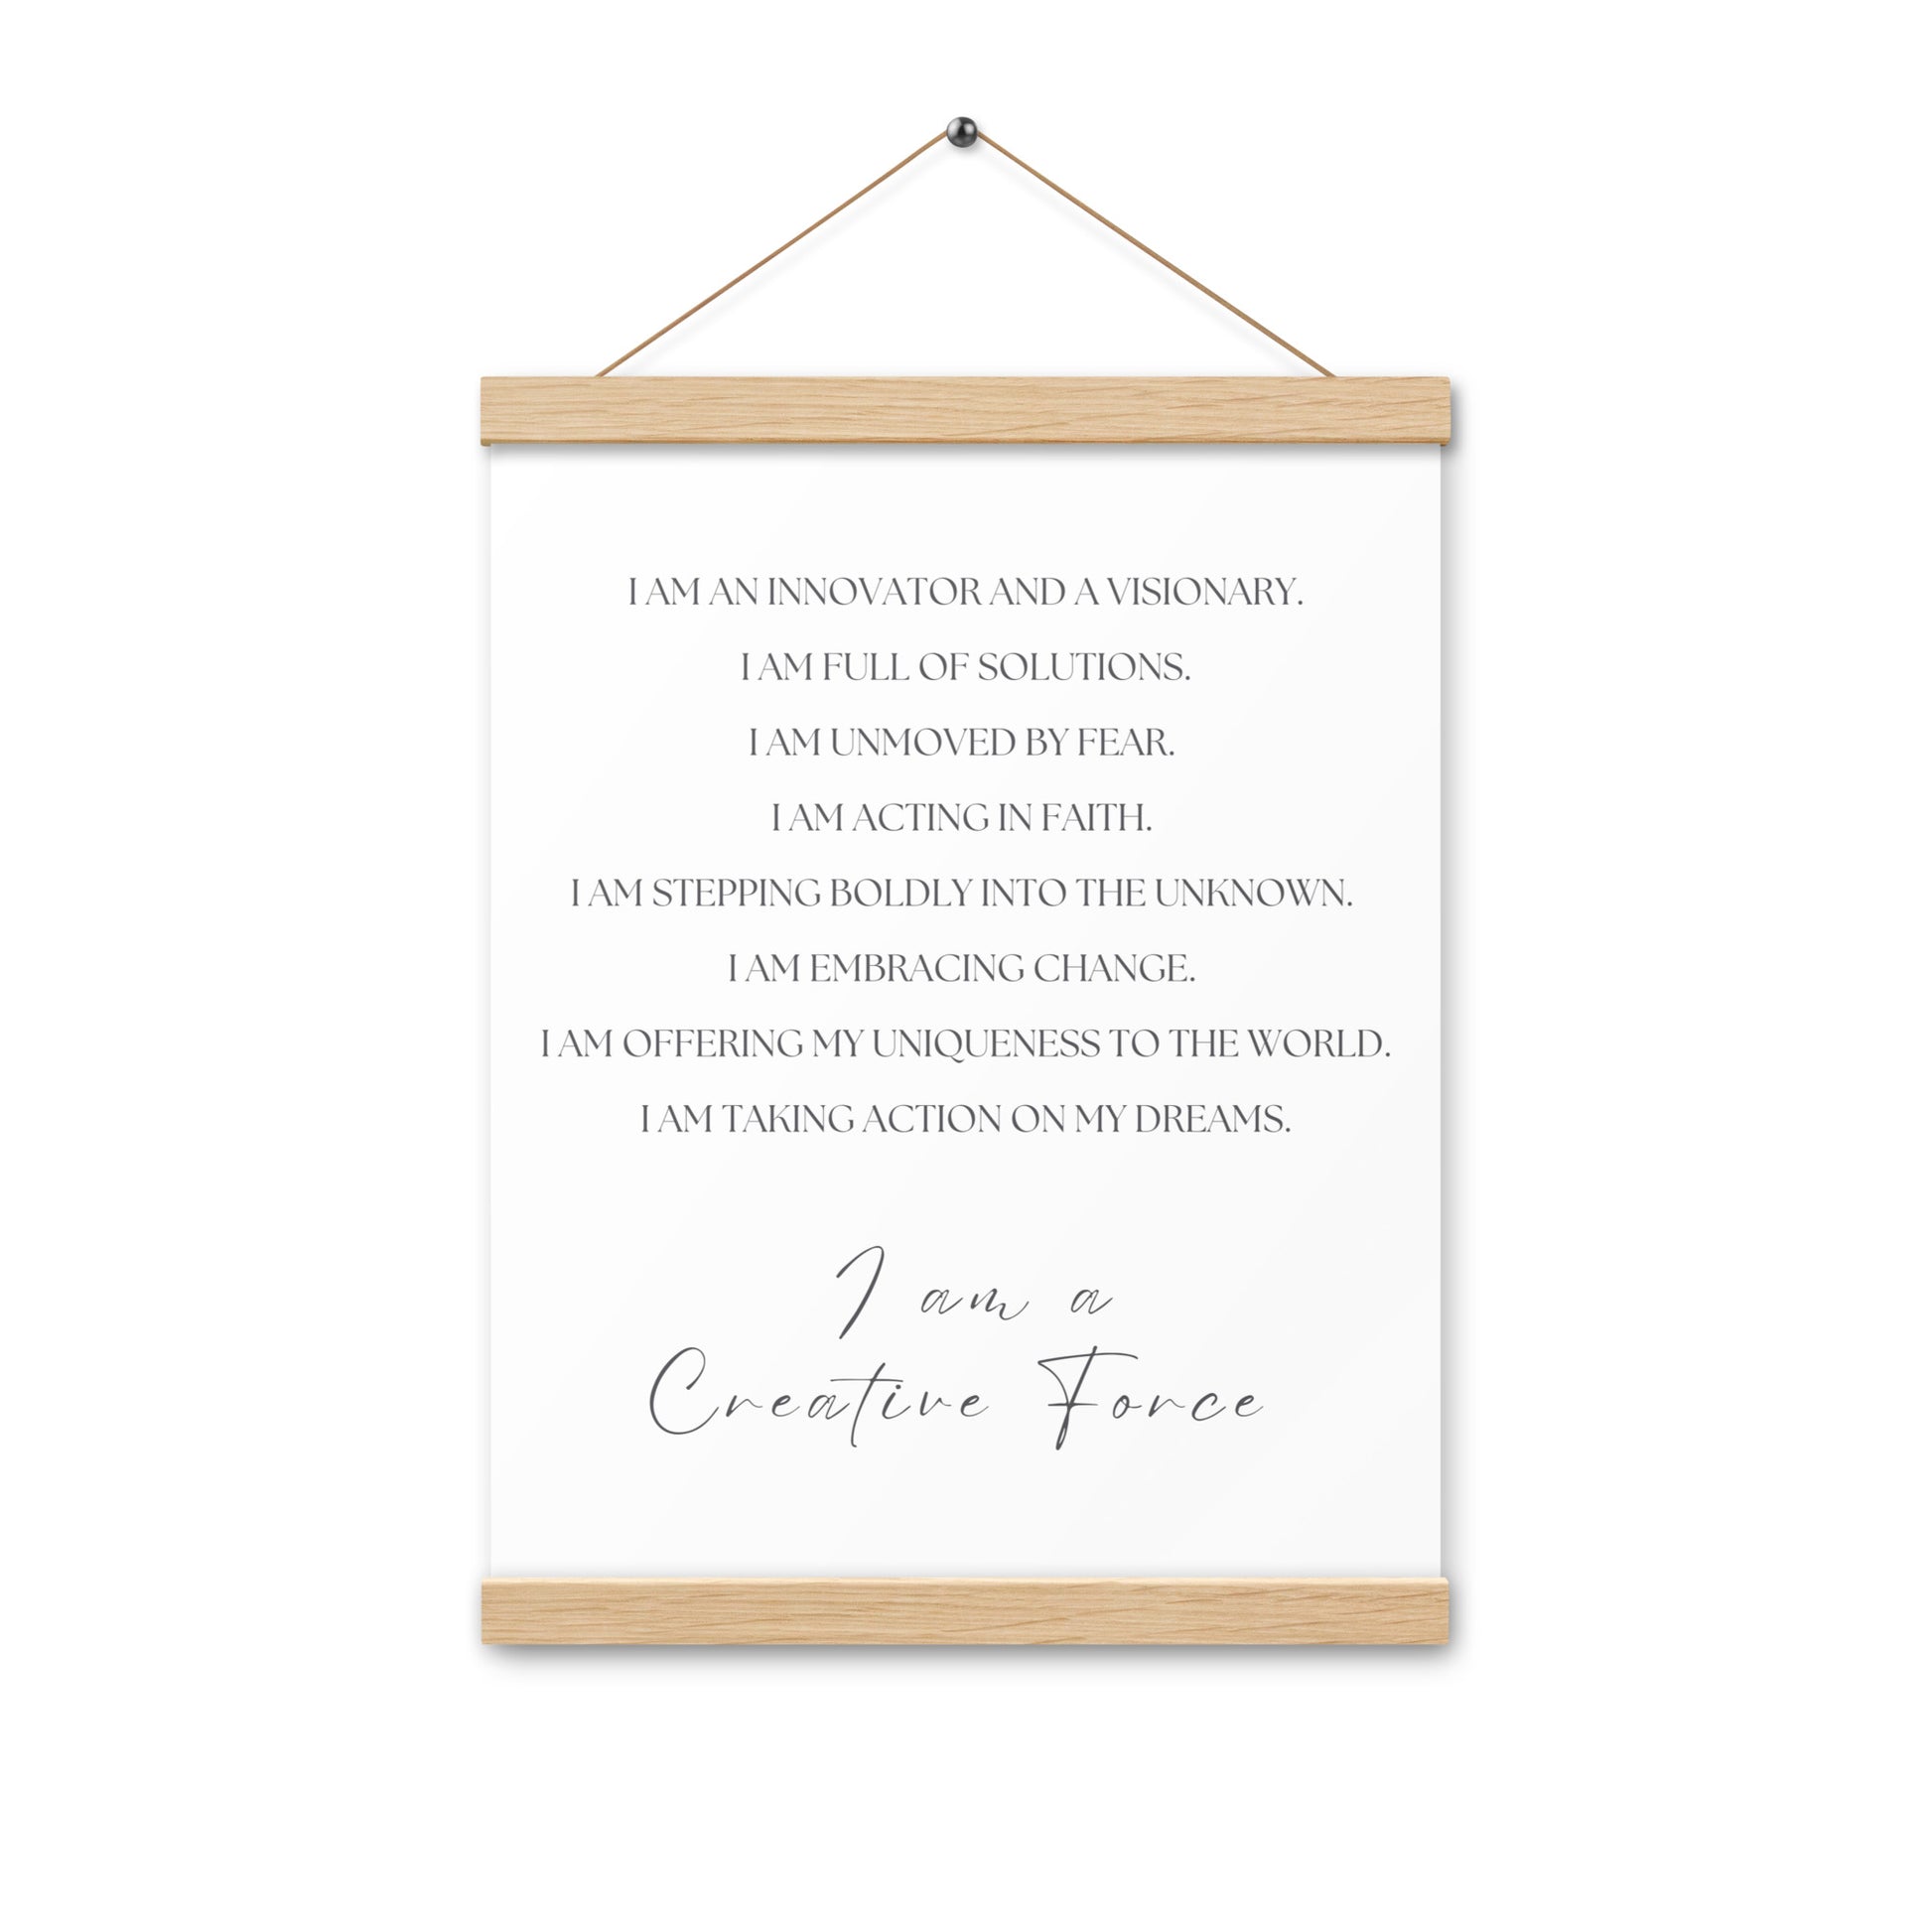 I AM AN INNOVATOR AND A VISIONARY.
I AM FULL OF SOLUTIONS.
I AM UNMOVED BY FEAR.
I AM ACTING IN FAITH.
I AM STEPPING BOLDLY INTO THE UNKNOWN.
I AM EMBRACING CHANGE.
I AM OFFERING MY UNIQUENESS TO THE WORLD.
I AM TAKING ACTION ON MY DREAMS.
I am a
Creative Force